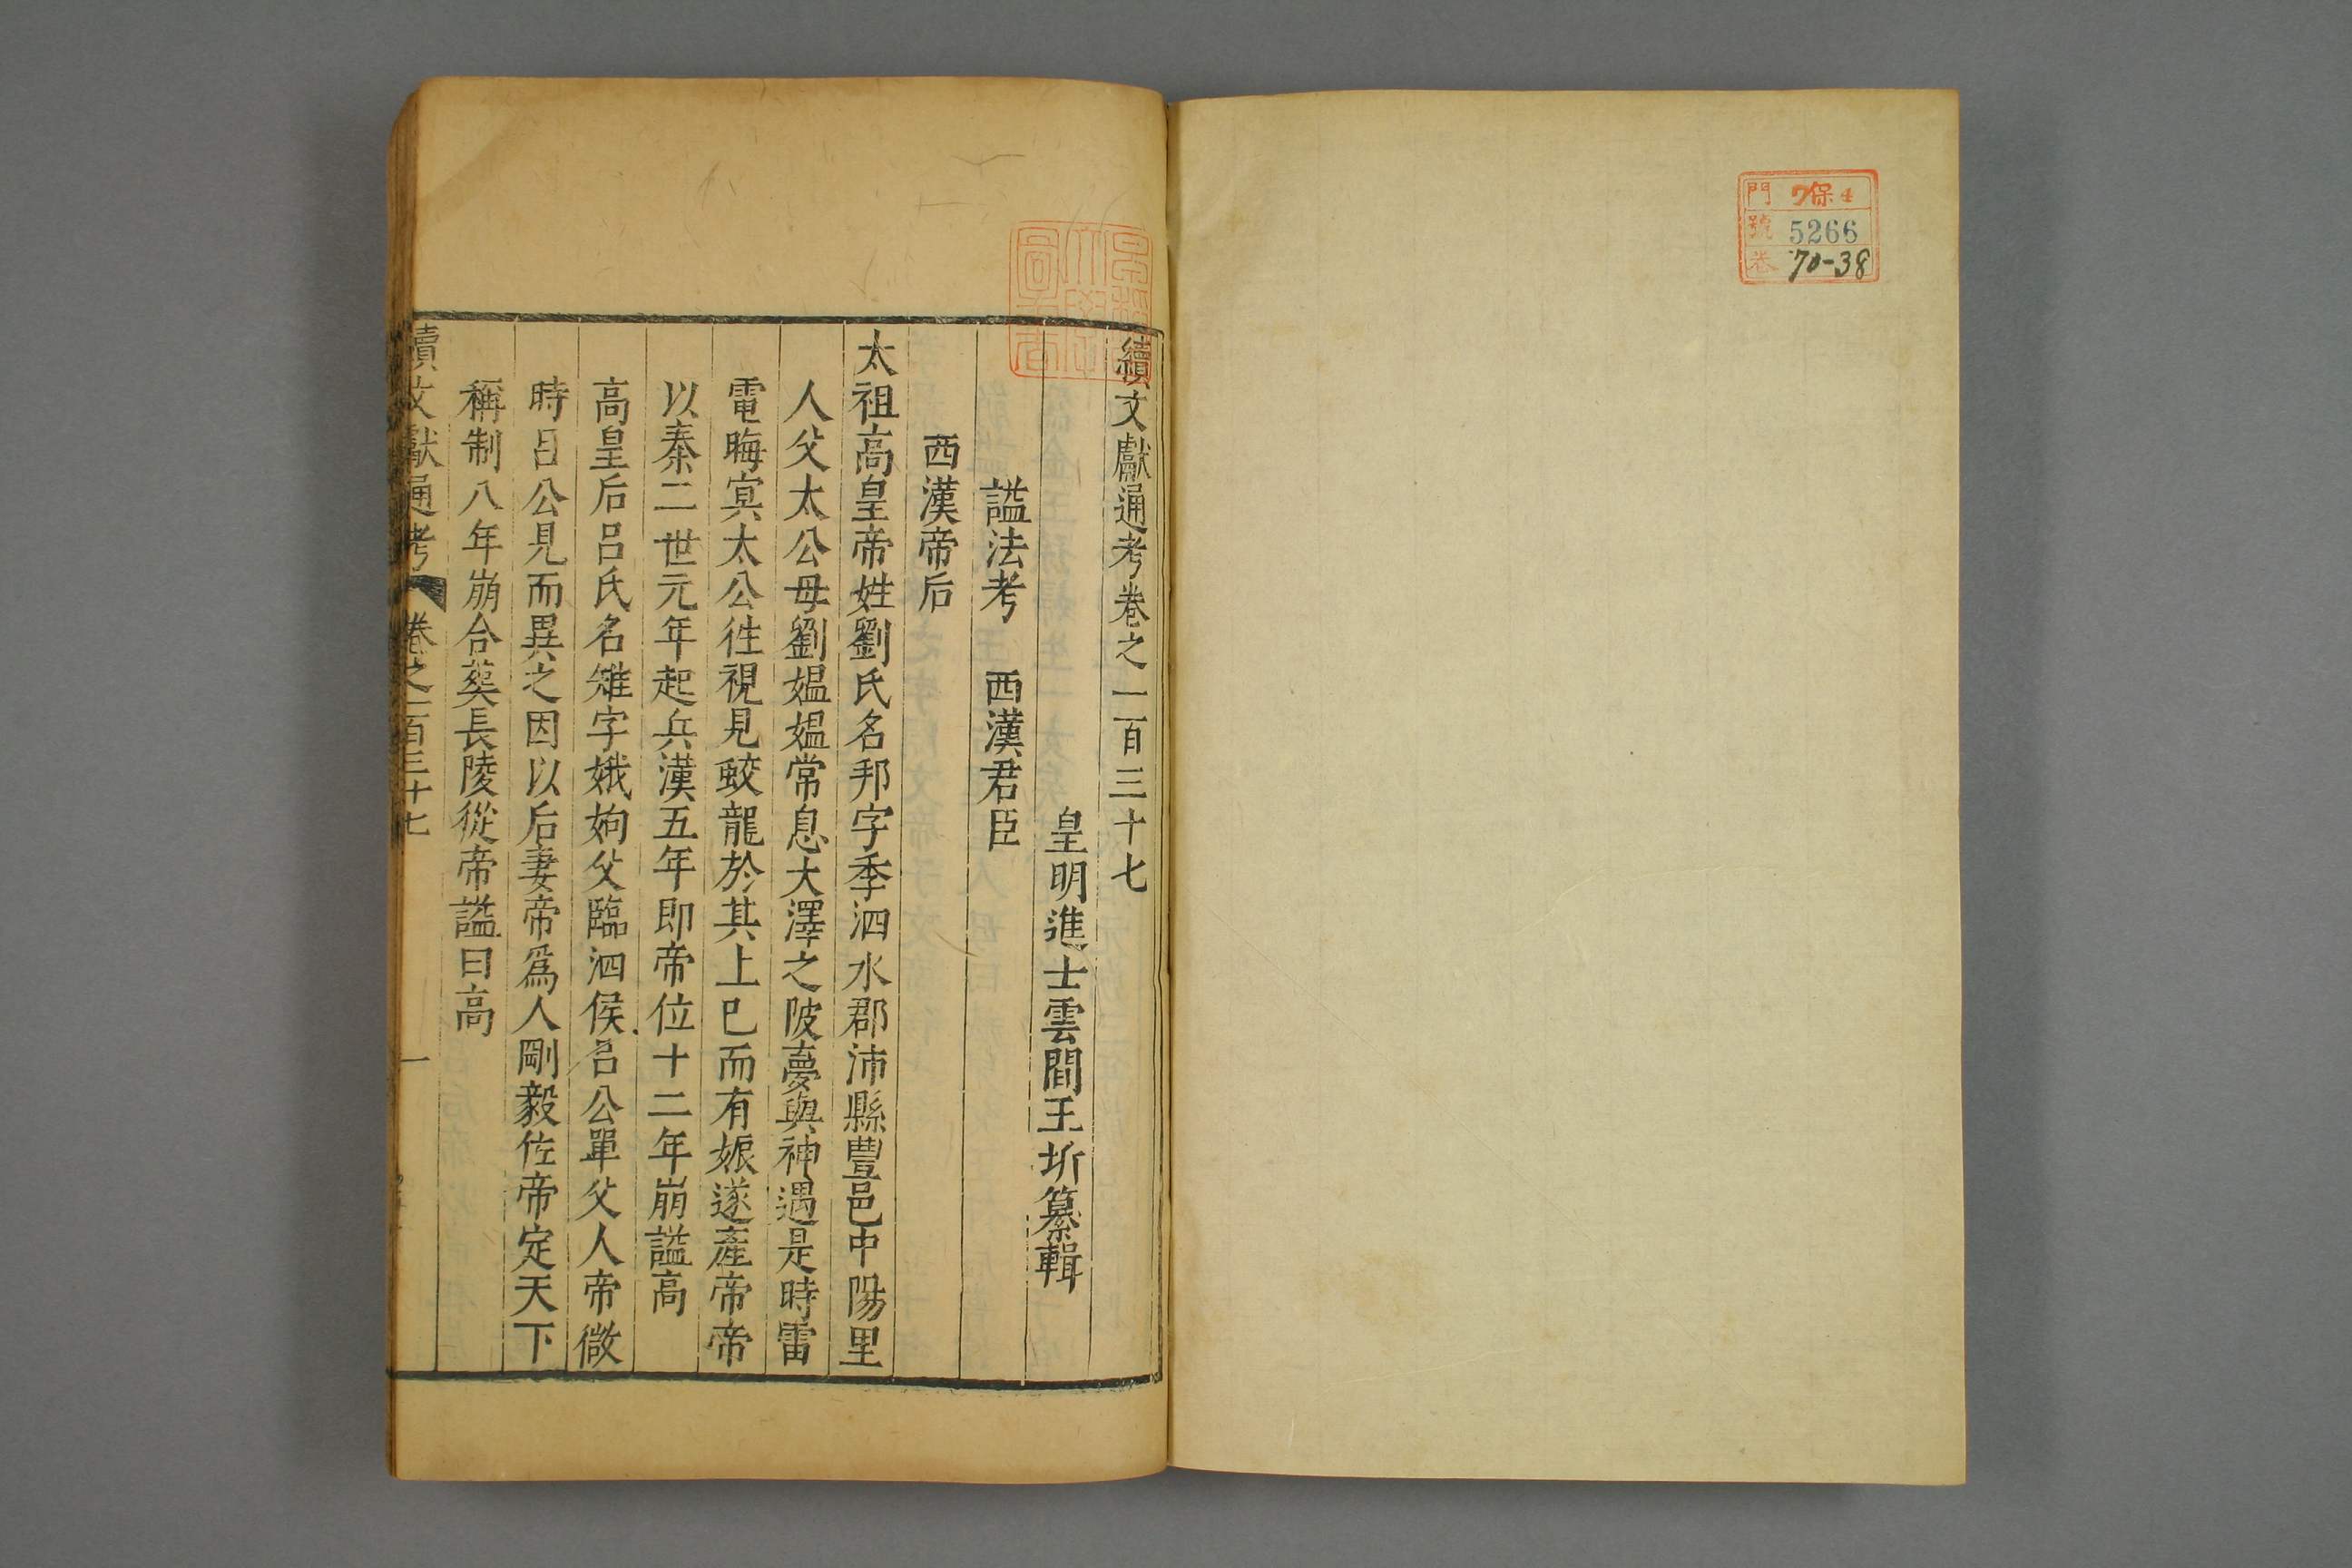 門 ワ保4
號 5266
卷 70-38
續文獻通考卷之一百三十七
皇明進士雲間王圻纂輯
謚法考 西漢君臣
西漢帝后
太祖高皇帝姓劉氏名邦字季泗水郡沛縣豐邑中陽里
人父太公母劉媼媼常息大澤之陂夢與神遇是時雷
電晦冥太公徃視見蛟龍於其上巳而有娠遂產帝帝
以秦二世元年起兵漢五年即帝位十二年崩謚高
高皇后呂氏名雉字娥姁父臨泗侯呂公單父人帝微
時呂公見而異之因以后妻帝爲人剛毅佐帝定天下
稱制八年崩合葬長陵從帝謚曰高
續文獻通考 卷之一百三十七 一